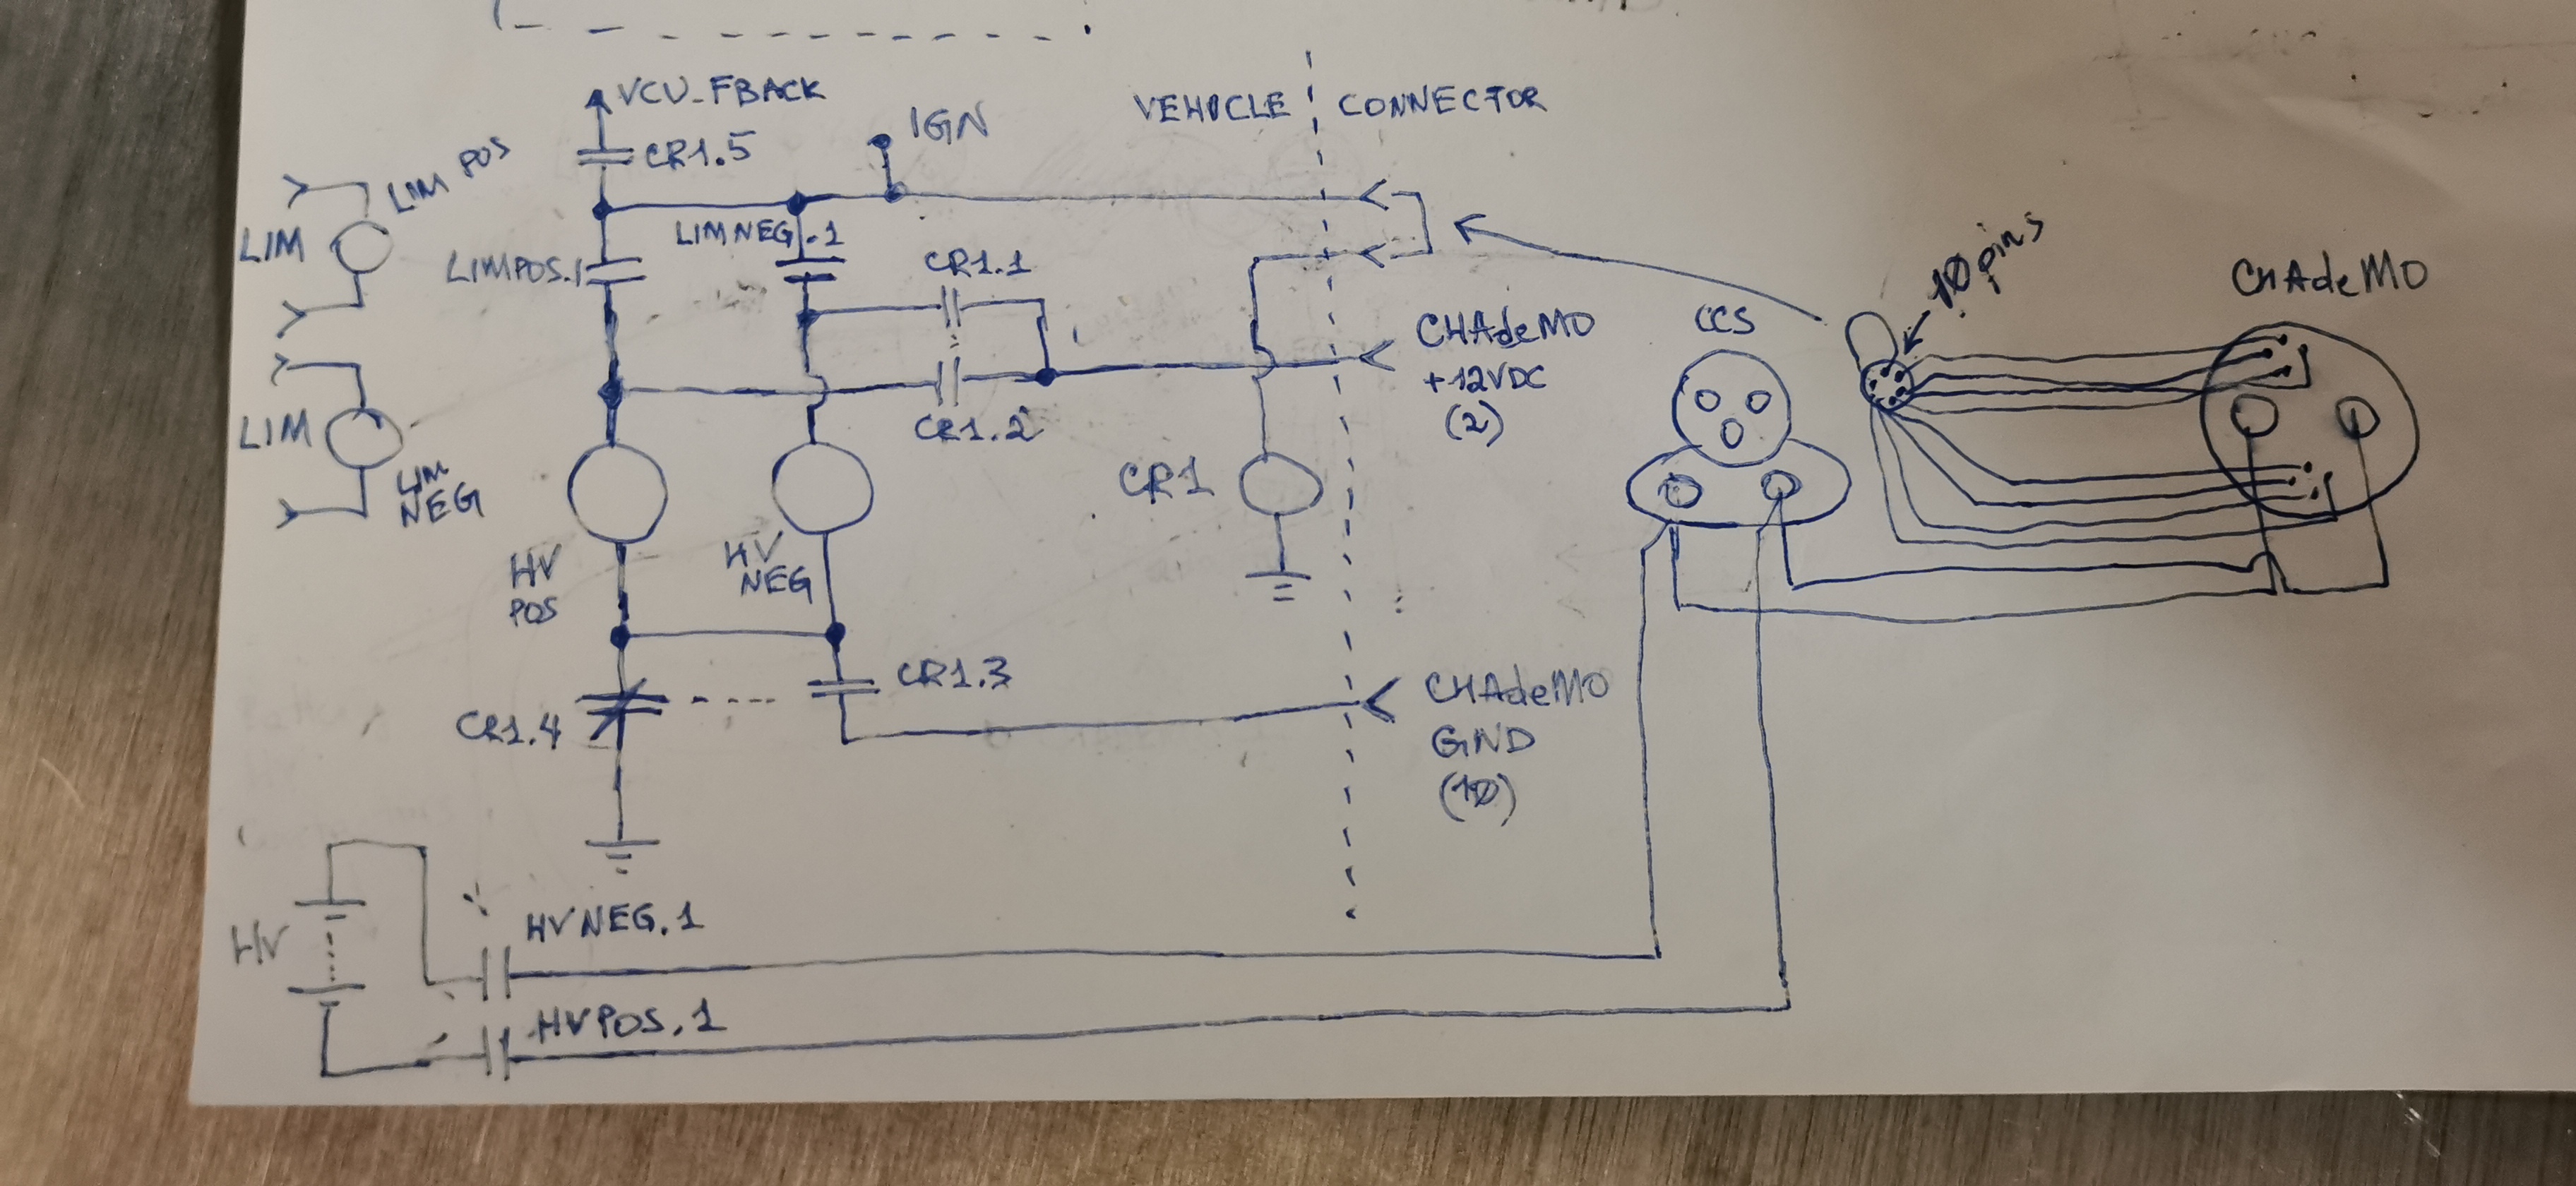 VCU_FBACK
CR1.5
IGN
VEHICLE
CONNECTOR
LIM POS
LIM
LIMPOS.1
LIMNEG.1
CR1.1
CR1.2
CHAdeMO
+12VDC
(2)
LIM
LIM
NEG
HV
POS
HV
NEG
CR1
CCS
10 pins
CHAdeMO
CR1.4
CR1.3
CHAdeMO
GND
(10)
HV
HVNEG.1
HVPOS.1